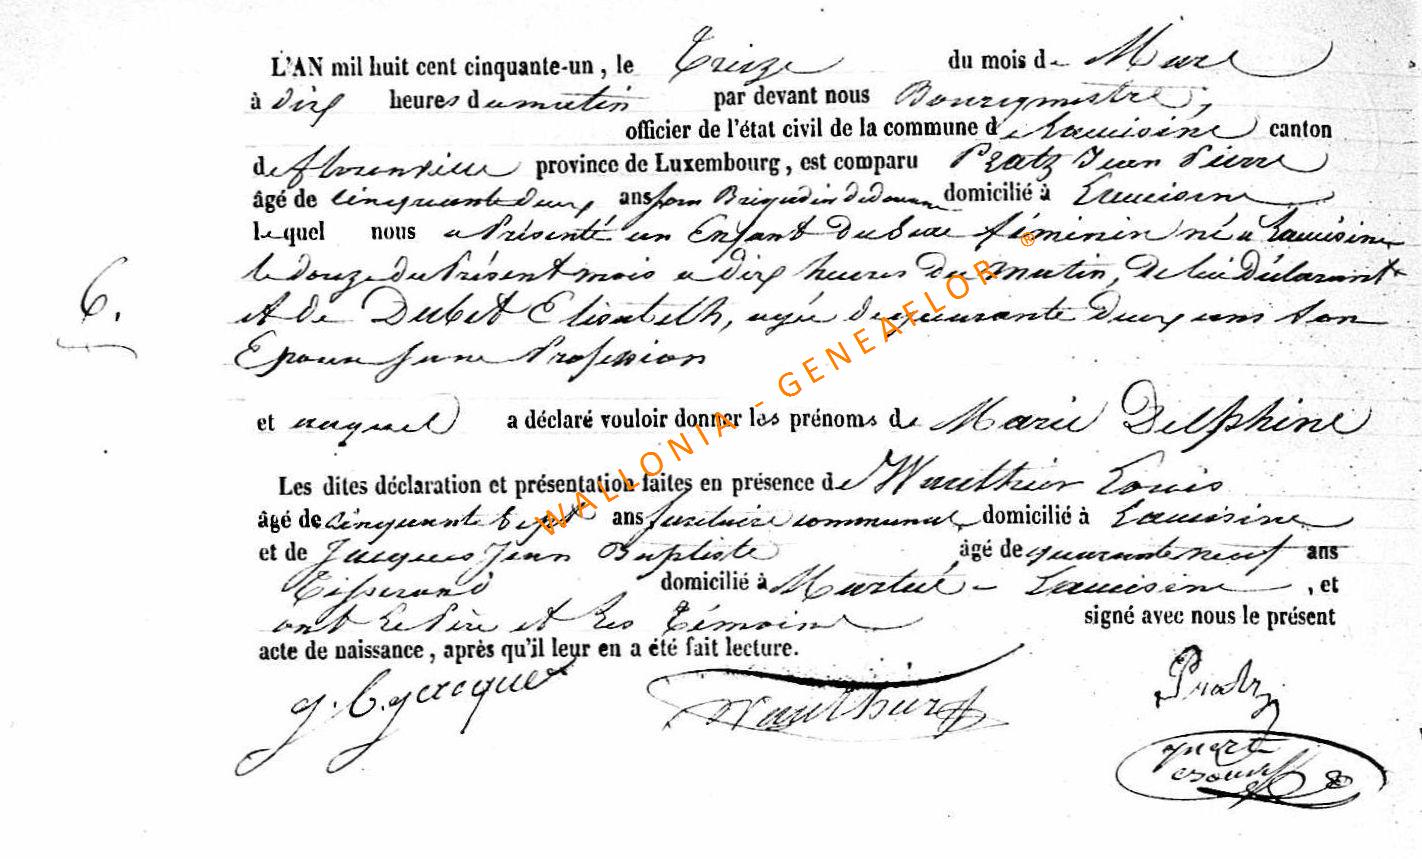 L'AN mil huit cent cinquante-un, le Treize du mois de Mars
à dix heures du matin par devant nous Bourgmestre,
officier de l'état civil de la commune de Lacuisine canton
de florenville province de Luxembourg, est comparu Pratz Jean Pierre
âgé de cinquante deux ans Brigadier de douane domicilié à Lacuisine
lequel nous a Présenté un Enfant du Sexe féminin né a Lacuisine
le douze du Présent mois a dix heures du matin, de lui Déclarant
et de Elisabeth, agée de quarante deux ans son
Epouse sans Profession
6.
et auquel a déclaré vouloir donner les prénoms de Marie Delphine
Les dites déclaration et présentation faites en présence de Wauthier Louis
âgé de cinquante Sept ans communal domicilié à Lacuisine
et de Jacques Jean Baptiste âgé de quarante neuf ans
Tisserand domicilié à Martué - Lacuisine, et
ont le Père et les Témoins signé avec nous le présent
acte de naissance, après qu'il leur en a été fait lecture.
J. B. Jacques Wauthier Pratz
WALLONIA - GENEAFLOR ®